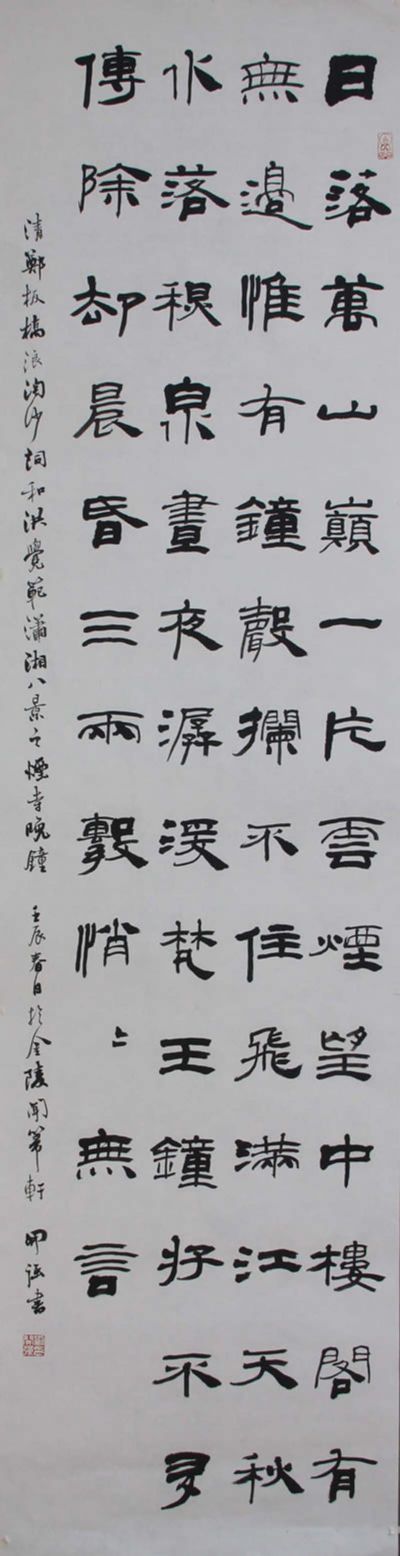 日落萬山巔一片雲煙望中樓閣有
無邊惟有鐘聲攔不住飛滿江天秋
水落秋泉晝夜潺湲梵王鐘好不多
傳除却晨昏三兩擊悄〻無言
清鄭板橋浪淘沙詞和洪覺範瀟湘八景之煙寺晚鐘 壬辰春日於金陵聞箏軒 書